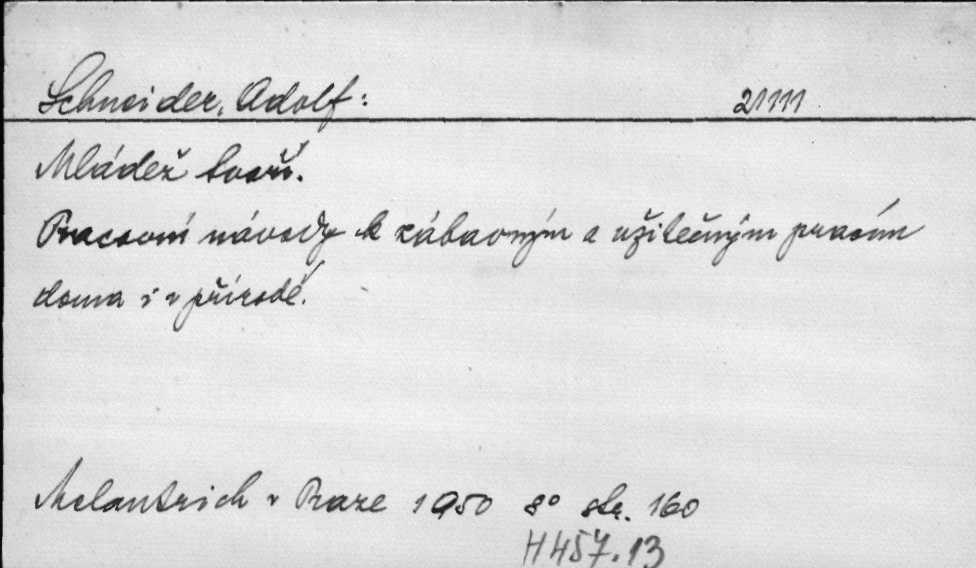 Schneider, Adolf: 21111
Mládež tvoří.
Pracovní návody k zábavným a užitečným pracím
doma i v přírodě.
Melantrich v Praze 1950 8° str. 160
H457.13